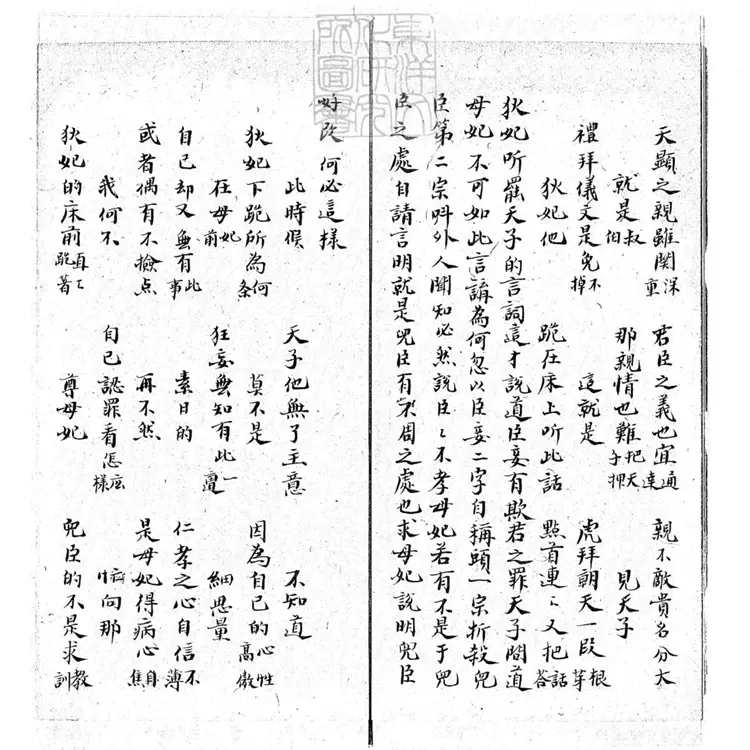 東洋文化研究所圖書
天顯之親雖関洋重 君臣之義也宜通達 親不敵貴名分大
就是叔伯 那親情也難把天子押 見天子
禮拜儀文是免不掉 這就是 虎拜朝天一段根芽
狄妃他 跪在床上听此話 點首連〻又把話答
狄妃听罷天子的言詞這才說道臣妾有欺君之罪天子聞道
母妃不可如此言講為何忽以臣妾二字自稱頭一宗折殺兒
臣第二宗呌外人聞知必然說臣〻不孝母妃若有不是于兒
臣之處自請言明就是兒臣有不周之處也求母妃說明兒臣
好改何必這樣
此時候 天子他無了主意 不知道
狄妃下跪所為何条 莫不是 因為自己的心性高傲
在母妃前 狂妄無知有此一 細思量
自己却又無有此事 素日的 仁孝之心自信不薄
或者偶有不撿点 再不然 是母妃得病心自焦
我何不 自己認罪看怎庅樣 向那
狄妃的床前直〻跪著 尊母妃 兒臣的不是求教訓